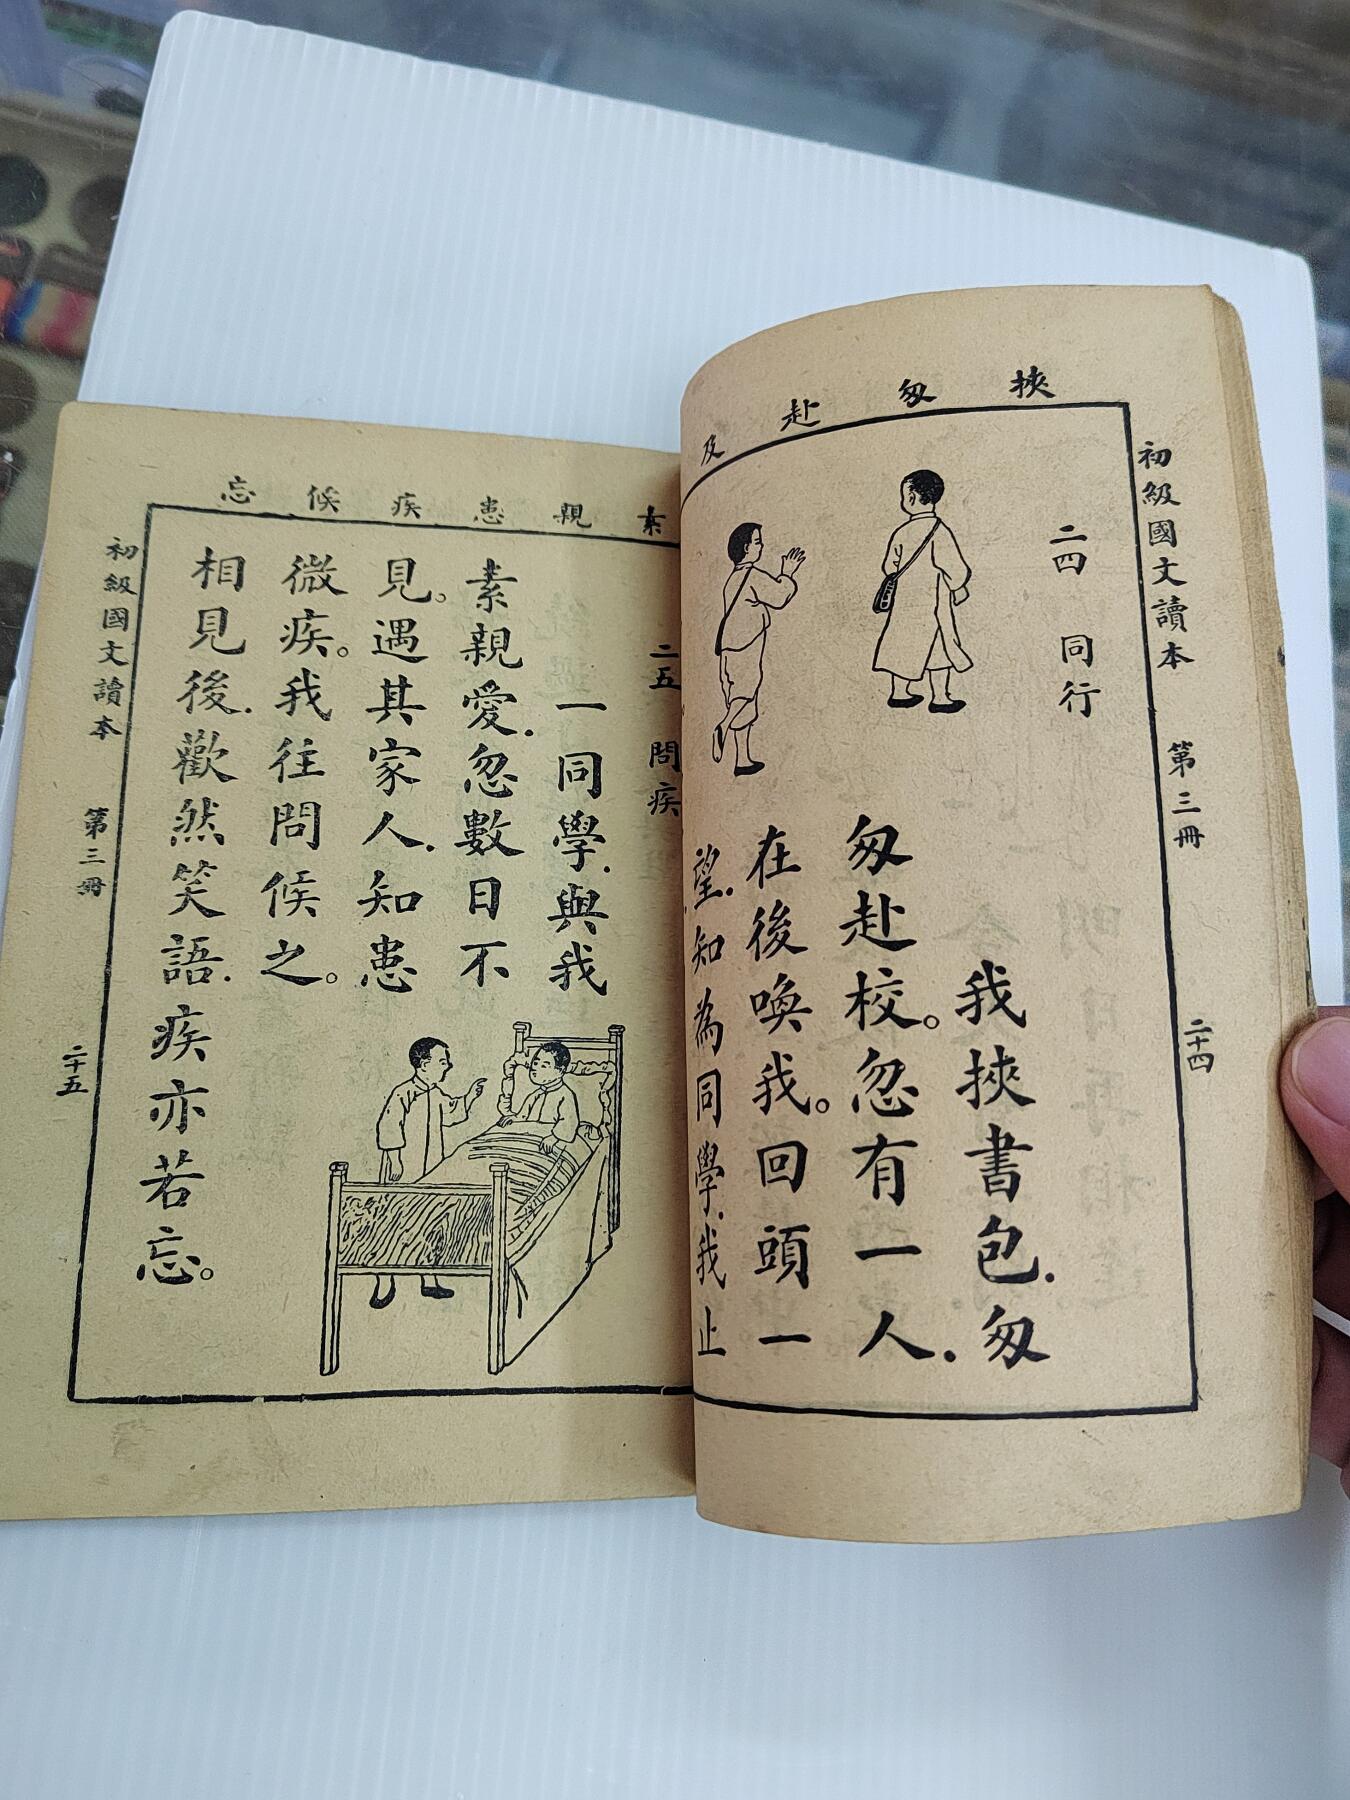 初級國文讀本 第三冊 二十四
挾匆赴及
二四 同行
我挾書包.匆
匆赴校。忽有一人.
在後喚我。回頭一
望.知為同學.我止
初級國文讀本 第三冊 二十五
素親患疾候忘
二五 問疾
一同學.與我
素親愛.忽數日不
見。遇其家人.知患
微疾。我往問候之。
相見後.歡然笑語.疾亦若忘。